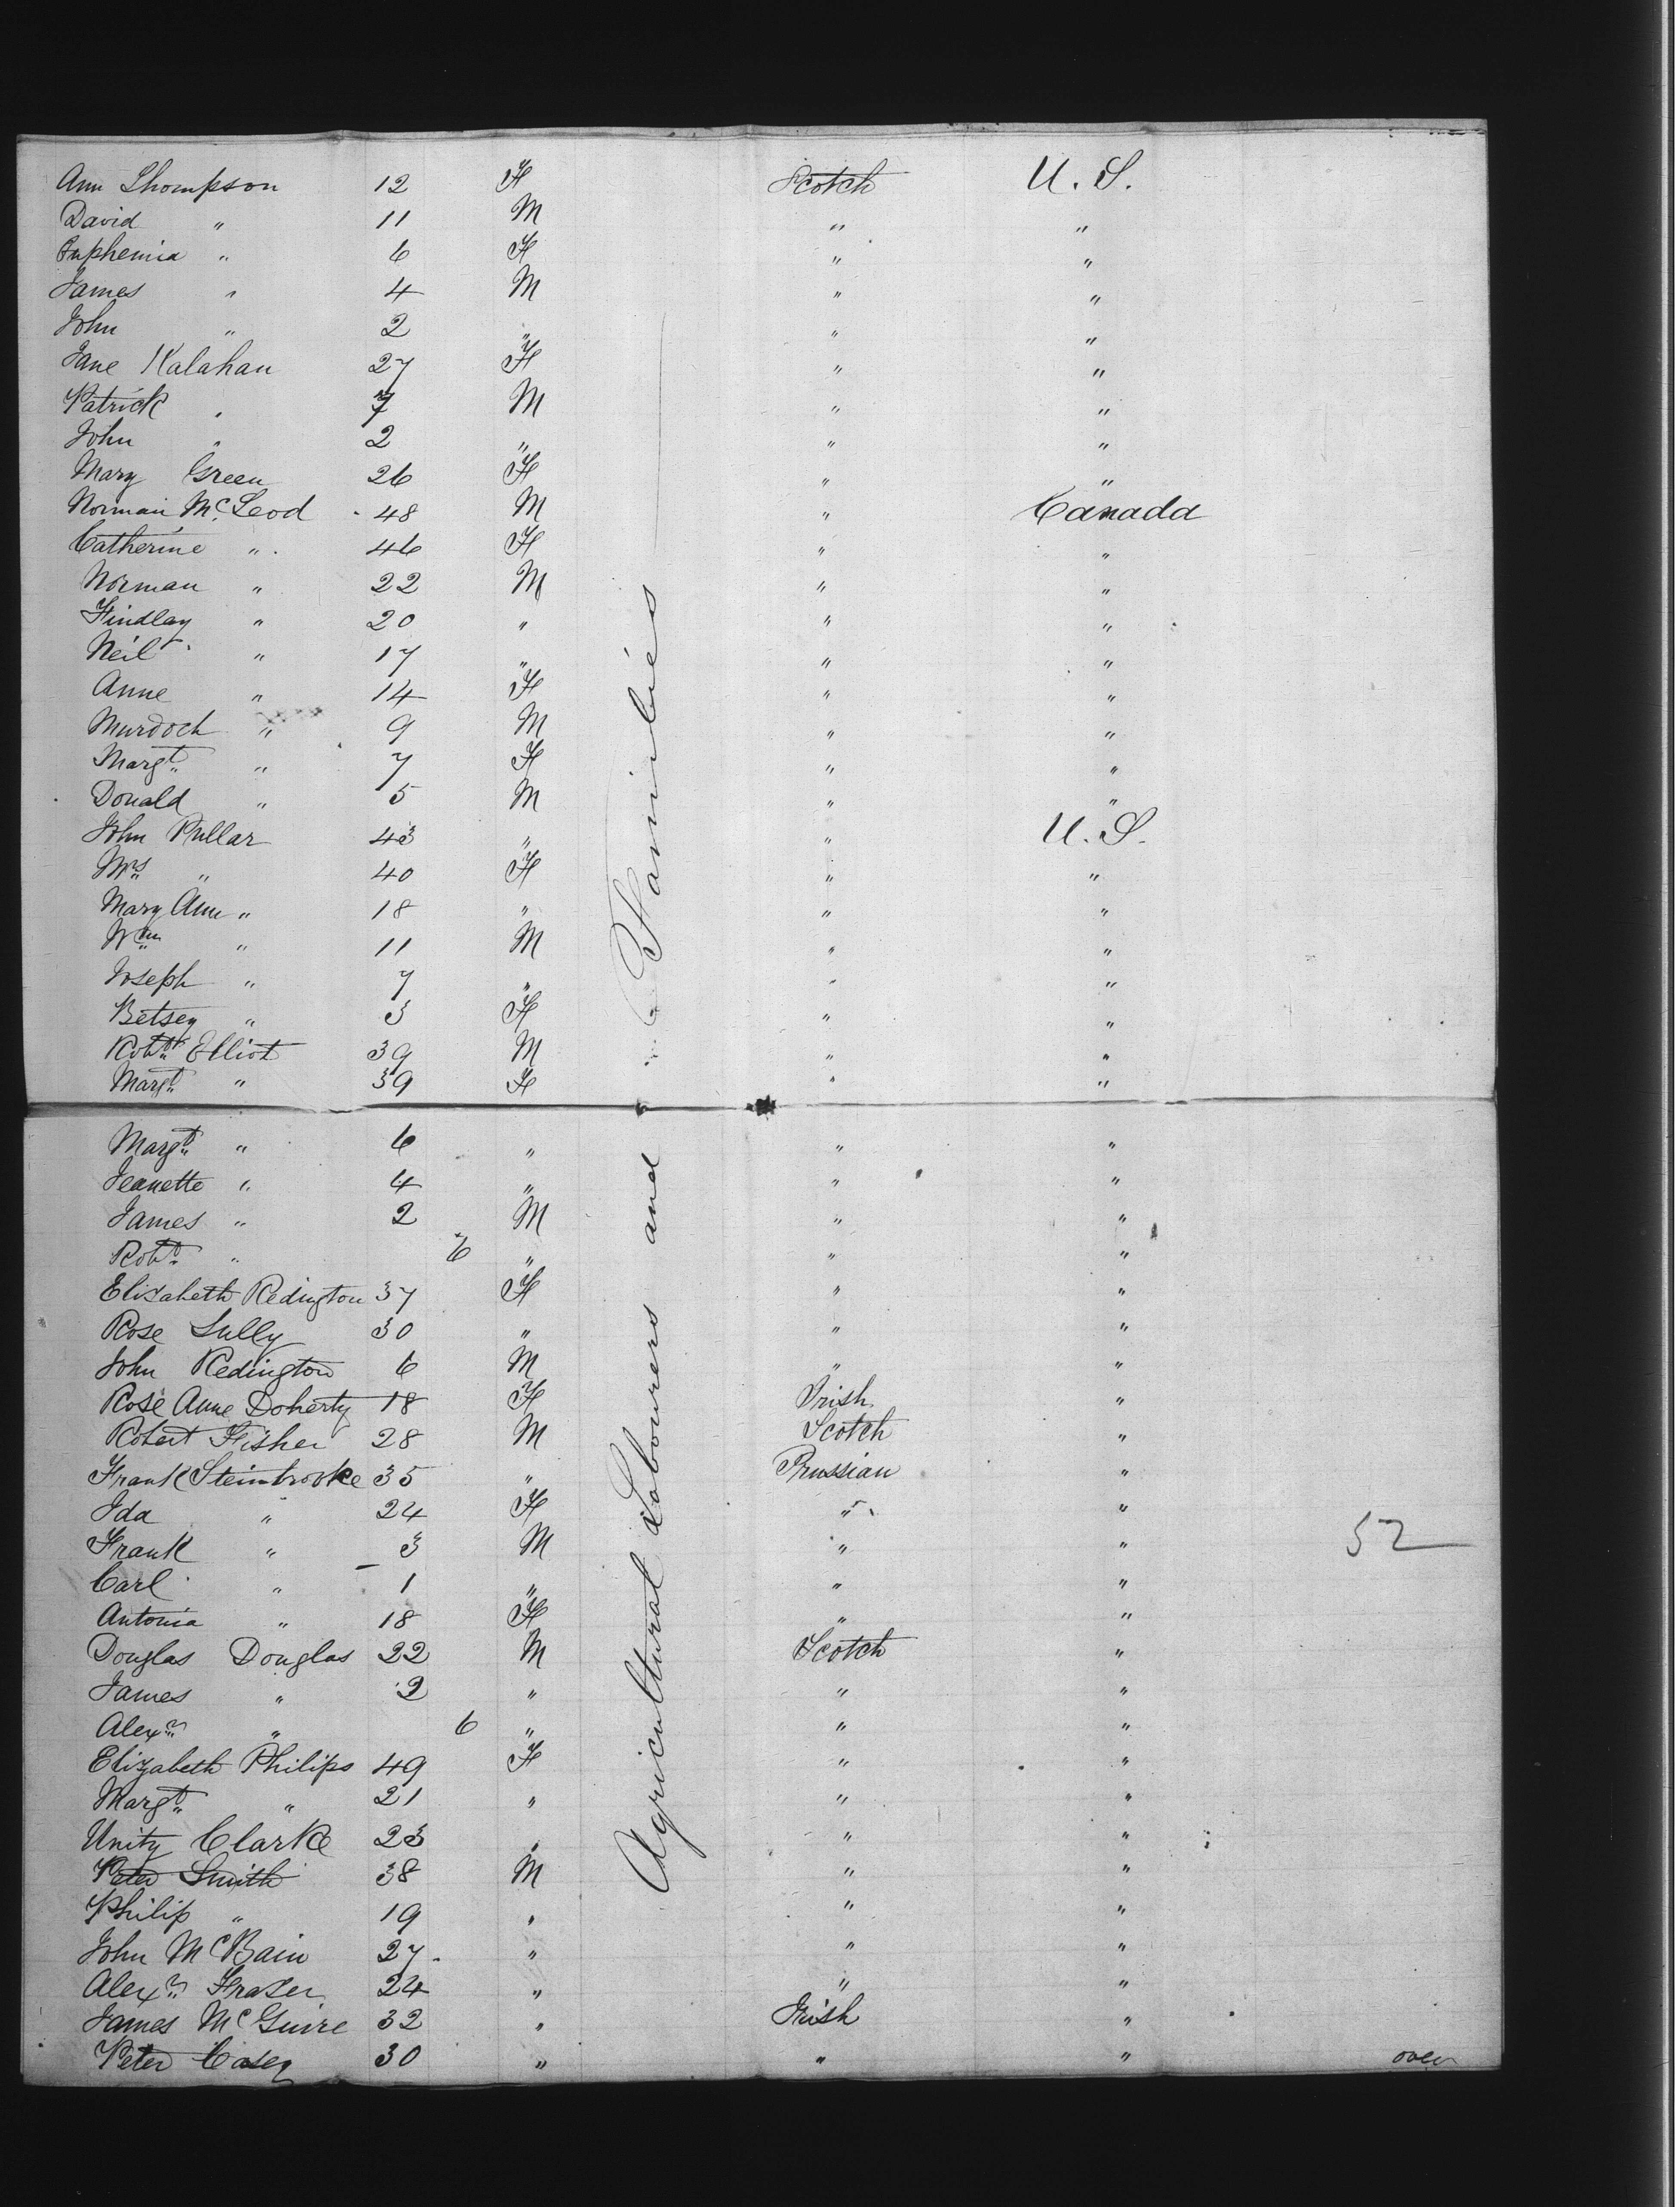 Ann Thompson 12 F Scotch U. S.
David " 11 M " "
Euphemia " 6 F " "
James " 4 M " "
John " 2 " " "
Jane Kalahan 27 F " "
Patrick " 7 M " "
John " 2 " " "
Mary Green 26 F " "
Norman McLeod 48 M " Canada
Catherine " 46 F " "
Norman " 22 M " "
Findlay " 20 " " "
Neil " 17 " " "
Anne " 14 F " "
Murdoch " 9 M " "
Margt " 7 F " "
Donald " 5 M " "
John Pullar 43 " " U. S.
Mrs " 40 F " "
Mary Ann " 18 " " "
Wm " 11 M " "
Joseph " 7 " " "
Betsey " 3 F " "
Robt Elliot 39 M " "
Margt " 39 F " "
Margt " 6 " " "
Jeanette " 4 " " "
James " 2 M " "
Robt " 6 " " "
Elizabeth Redington 37 F " "
Rose Lully 30 " " "
John Redington 6 M " "
Rose Anne Doherty 18 F Irish "
Robert Fisher 28 M Scotch "
Frank Steinbrooke 35 " Prussian "
Ida " 24 F " "
Frank " 3 M " " 52
Carl " 1 " " "
Antonia " 18 F " "
Douglas Douglas 22 M Scotch "
James " 2 " " "
Alexr " 6 " " "
Elizabeth Philips 49 F " "
Margt " 21 " " "
Unity Clarke 23 " " "
Peter Smith 38 M " "
Philip " 19 " " "
John McBain 27 " " "
Alexr Fraser 24 " " "
James McGuire 32 " Irish "
Peter Casey 30 " " "
over
Agricultural Labourers and Families